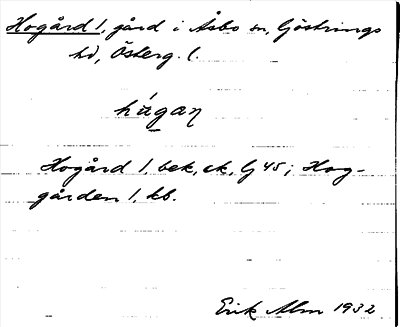 Hogård 1, gård i Åsbo sn, Göstrings
hd, Österg. l.
hú̱gaꞃ
Hogård 1, bek, ek, Gj 45; Hog-
gården 1, kb.
Erik Alm 1932